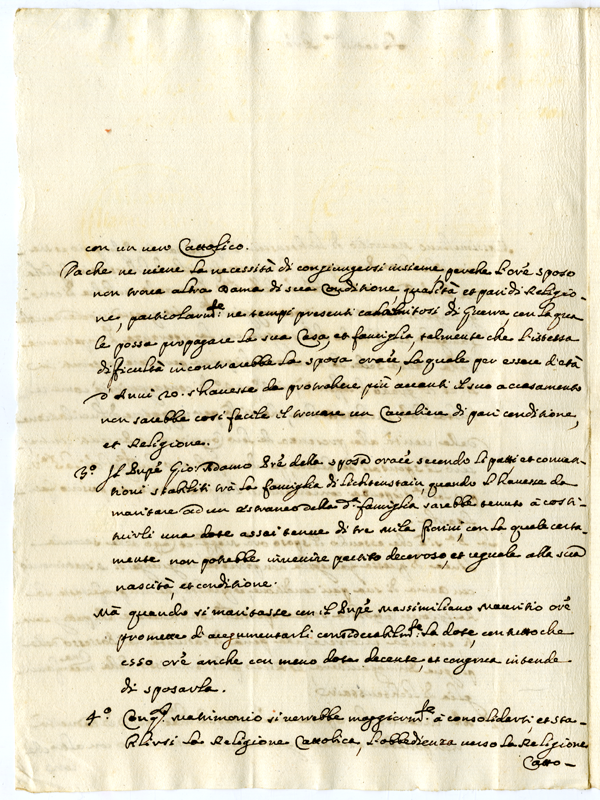 con un vero Cattolico.
Da che ne viene la necessità di congiungersi insieme, perche l'ore sposo
non trova altra Dama di sua conditione qualità et pari di Religio-
ne, particolarmte ne tempi presenti calamitosi di Guerra, con la qua
le possa propagare la sua Casa, et famiglia, talmente che l'istessa
difficultà incontrarebbe la sposa orace, la quale per essere d'età
d'Anni 20. s'havesse da protrahere più avanti il suo accasamento
non sarebbe così facile il trovare un Cavaliere di pari conditione,
et Religione.
3.° Il Prnpe Gior Adamo Pre della sposa orace secondo li patti et conven-
tioni stabiliti trà la famiglia di Lichtenstain quando l'havesse da
maritare ad un estraneo della da famiglia sarebbe tenuto à costi-
tuirli una dote assai tenue di tre mila fiorini, con la quale certa-
mente non potrebbe invenire partito decoroso, et uguale alla sua
nascità, et conditione.
Mà quando si maritasse con il Prnpe Massimiliano Mauritio ore
promette di augumentarli considerabilmte la dote, con tutto che
esso ore anche con meno dote decente, et congrua intende
di sposarla.
4.° Con qto matrimonio si verrebbe maggiormte à consolidarsi, et sta-
bilirsi la Religione Cattolica, l'obbedienza verso la Religione
Catto-